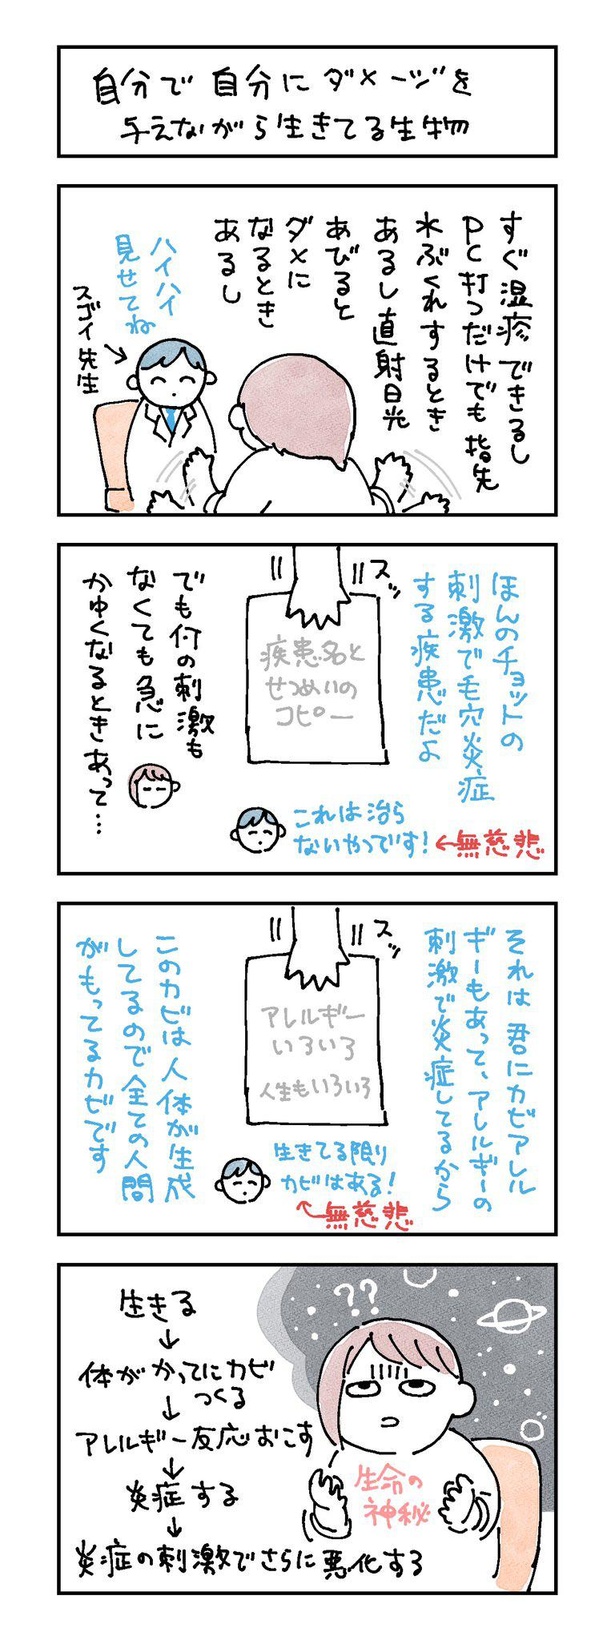 自分で自分にダメージを
与えながら生きてる生物
すぐ湿疹できるし
PC打つだけでも指先
水ぶくれするとき
あるし直射日光
あびると
ダメに
なるとき
あるし
ハイハイ
見せてね
スゴイ先生
ほんのチョットの
刺激で毛穴炎症
する疾患だよ
スッ
疾患名と
せつめいの
コピー
でも何の刺激も
なくても急に
かゆくなるときあって…
これは治ら
ないやつです!
←無慈悲
それは君にカビアレル
ギーもあって、アレルギーの
刺激で炎症してるから
スッ
アレルギー
いろいろ
人生もいろいろ
このカビは人体が生成
してるので全ての人間
がもってるカビです
生きてる限り
カビはある!
←無慈悲
生きる
↓
体がかってにカビ
つくる
↓
アレルギー反応おこす
↓
炎症する
↓
炎症の刺激でさらに悪化する
??
生命の
神秘